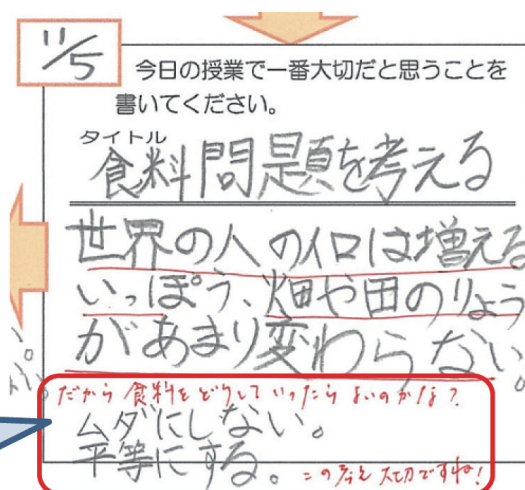 11/5
今日の授業で一番大切だと思うことを
書いてください。
タイトル
食料問題を考える
世界の人の人口は増える
いっぽう、畑や田のりょう
があまり変わらない。
だから食料をどうしていったらよいのかな?
ムダにしない。
平等にする。
この考え大切ですね!